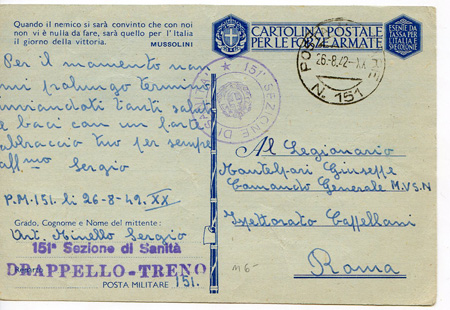 Quando il nemico si sarà convinto che con noi
non vi è nulla da fare, sarà quello per l'Italia
il giorno della vittoria. MUSSOLINI
CARTOLINA POSTALE
PER LE FORZE ARMATE
ESENTE DA
TASSE PER
L'ITALIA E
SPEDIZIONE
26-8-42-XX
N. 151
151ª SEZIONE DI
Per il momento non
mi prolungo termi
tanti saluti
e baci con un forte
abbraccio tuo per sempre
aff.mo Sergio
P.M. 151. li 26-8-42. XX
Grado, Cognome e Nome del mittente:
Art. Minello Sergio
151ª Sezione di Sanità
DRAPPELLO-TRENO
POSTA MILITARE 151.
Al Legionario
Montelpari Giuseppe
Comando Generale M.V.S.N
Ispettorato Cappellani
Roma